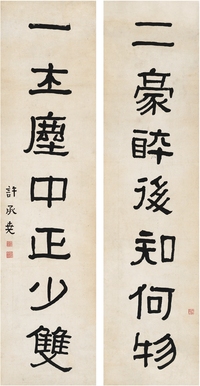 二豪眸後知何物
一土塵中正少雙
許承堯